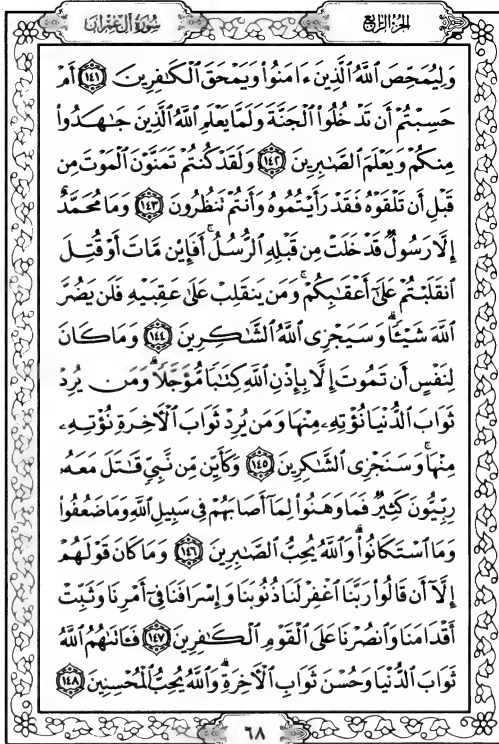 سُورَةُ آلِ عِمْرَانَ
الجُزْءُ الرَّابِعُ
وَلِيُمَحِّصَ ٱللَّهُ ٱلَّذِينَ ءَامَنُوا۟ وَيَمْحَقَ ٱلْكَٰفِرِينَ ١٤١ أَمْ
حَسِبْتُمْ أَن تَدْخُلُوا۟ ٱلْجَنَّةَ وَلَمَّا يَعْلَمِ ٱللَّهُ ٱلَّذِينَ جَٰهَدُوا۟
مِنكُمْ وَيَعْلَمَ ٱلصَّٰبِرِينَ ١٤٢ وَلَقَدْ كُنتُمْ تَمَنَّوْنَ ٱلْمَوْتَ مِن
قَبْلِ أَن تَلْقَوْهُ فَقَدْ رَأَيْتُمُوهُ وَأَنتُمْ تَنظُرُونَ ١٤٣ وَمَا مُحَمَّدٌ
إِلَّا رَسُولٌ قَدْ خَلَتْ مِن قَبْلِهِ ٱلرُّسُلُ ۚ أَفَإِي۟ن مَّاتَ أَوْ قُتِلَ
ٱنقَلَبْتُمْ عَلَىٰٓ أَعْقَٰبِكُمْ ۚ وَمَن يَنقَلِبْ عَلَىٰ عَقِبَيْهِ فَلَن يَضُرَّ
ٱللَّهَ شَيْـًٔا ۗ وَسَيَجْزِى ٱللَّهُ ٱلشَّٰكِرِينَ ١٤٤ وَمَا كَانَ
لِنَفْسٍ أَن تَمُوتَ إِلَّا بِإِذْنِ ٱللَّهِ كِتَٰبًا مُّؤَجَّلًا ۗ وَمَن يُرِدْ
ثَوَابَ ٱلدُّنْيَا نُؤْتِهِۦ مِنْهَا وَمَن يُرِدْ ثَوَابَ ٱلْـَٔاخِرَةِ نُؤْتِهِۦ
مِنْهَا ۚ وَسَنَجْزِى ٱلشَّٰكِرِينَ ١٤٥ وَكَأَيِّن مِّن نَّبِىٍّ قَٰتَلَ مَعَهُۥ
رِبِّيُّونَ كَثِيرٌ فَمَا وَهَنُوا۟ لِمَآ أَصَابَهُمْ فِى سَبِيلِ ٱللَّهِ وَمَا ضَعُفُوا۟
وَمَا ٱسْتَكَانُوا۟ ۗ وَٱللَّهُ يُحِبُّ ٱلصَّٰبِرِينَ ١٤٦ وَمَا كَانَ قَوْلَهُمْ
إِلَّآ أَن قَالُوا۟ رَبَّنَا ٱغْفِرْ لَنَا ذُنُوبَنَا وَإِسْرَافَنَا فِىٓ أَمْرِنَا وَثَبِّتْ
أَقْدَامَنَا وَٱنصُرْنَا عَلَى ٱلْقَوْمِ ٱلْكَٰفِرِينَ ١٤٧ فَـَٔاتَىٰهُمُ ٱللَّهُ
ثَوَابَ ٱلدُّنْيَا وَحُسْنَ ثَوَابِ ٱلْـَٔاخِرَةِ ۗ وَٱللَّهُ يُحِبُّ ٱلْمُحْسِنِينَ ١٤٨
٦٨